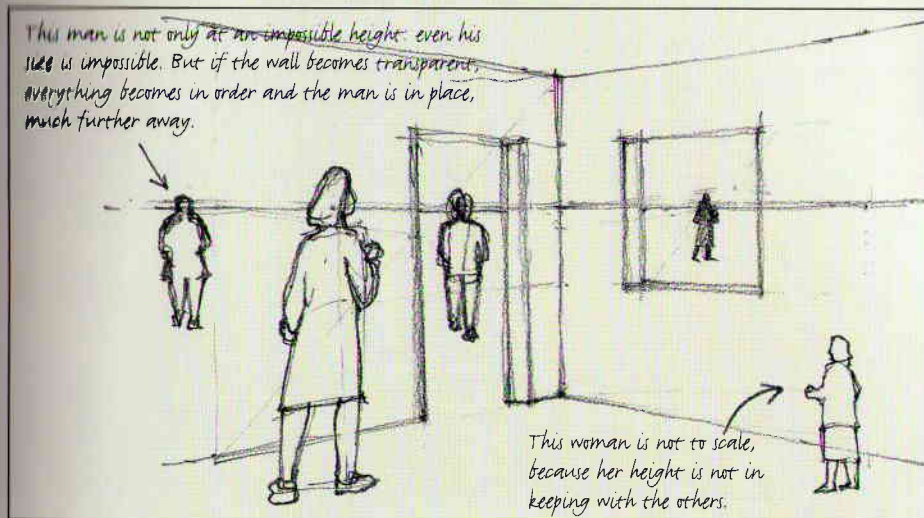 This man is not only at an impossible height: even his
size is impossible. But if the wall becomes transparent,
everything becomes in order and the man is in place,
much further away.
This woman is not to scale,
because her height is not in
keeping with the others.